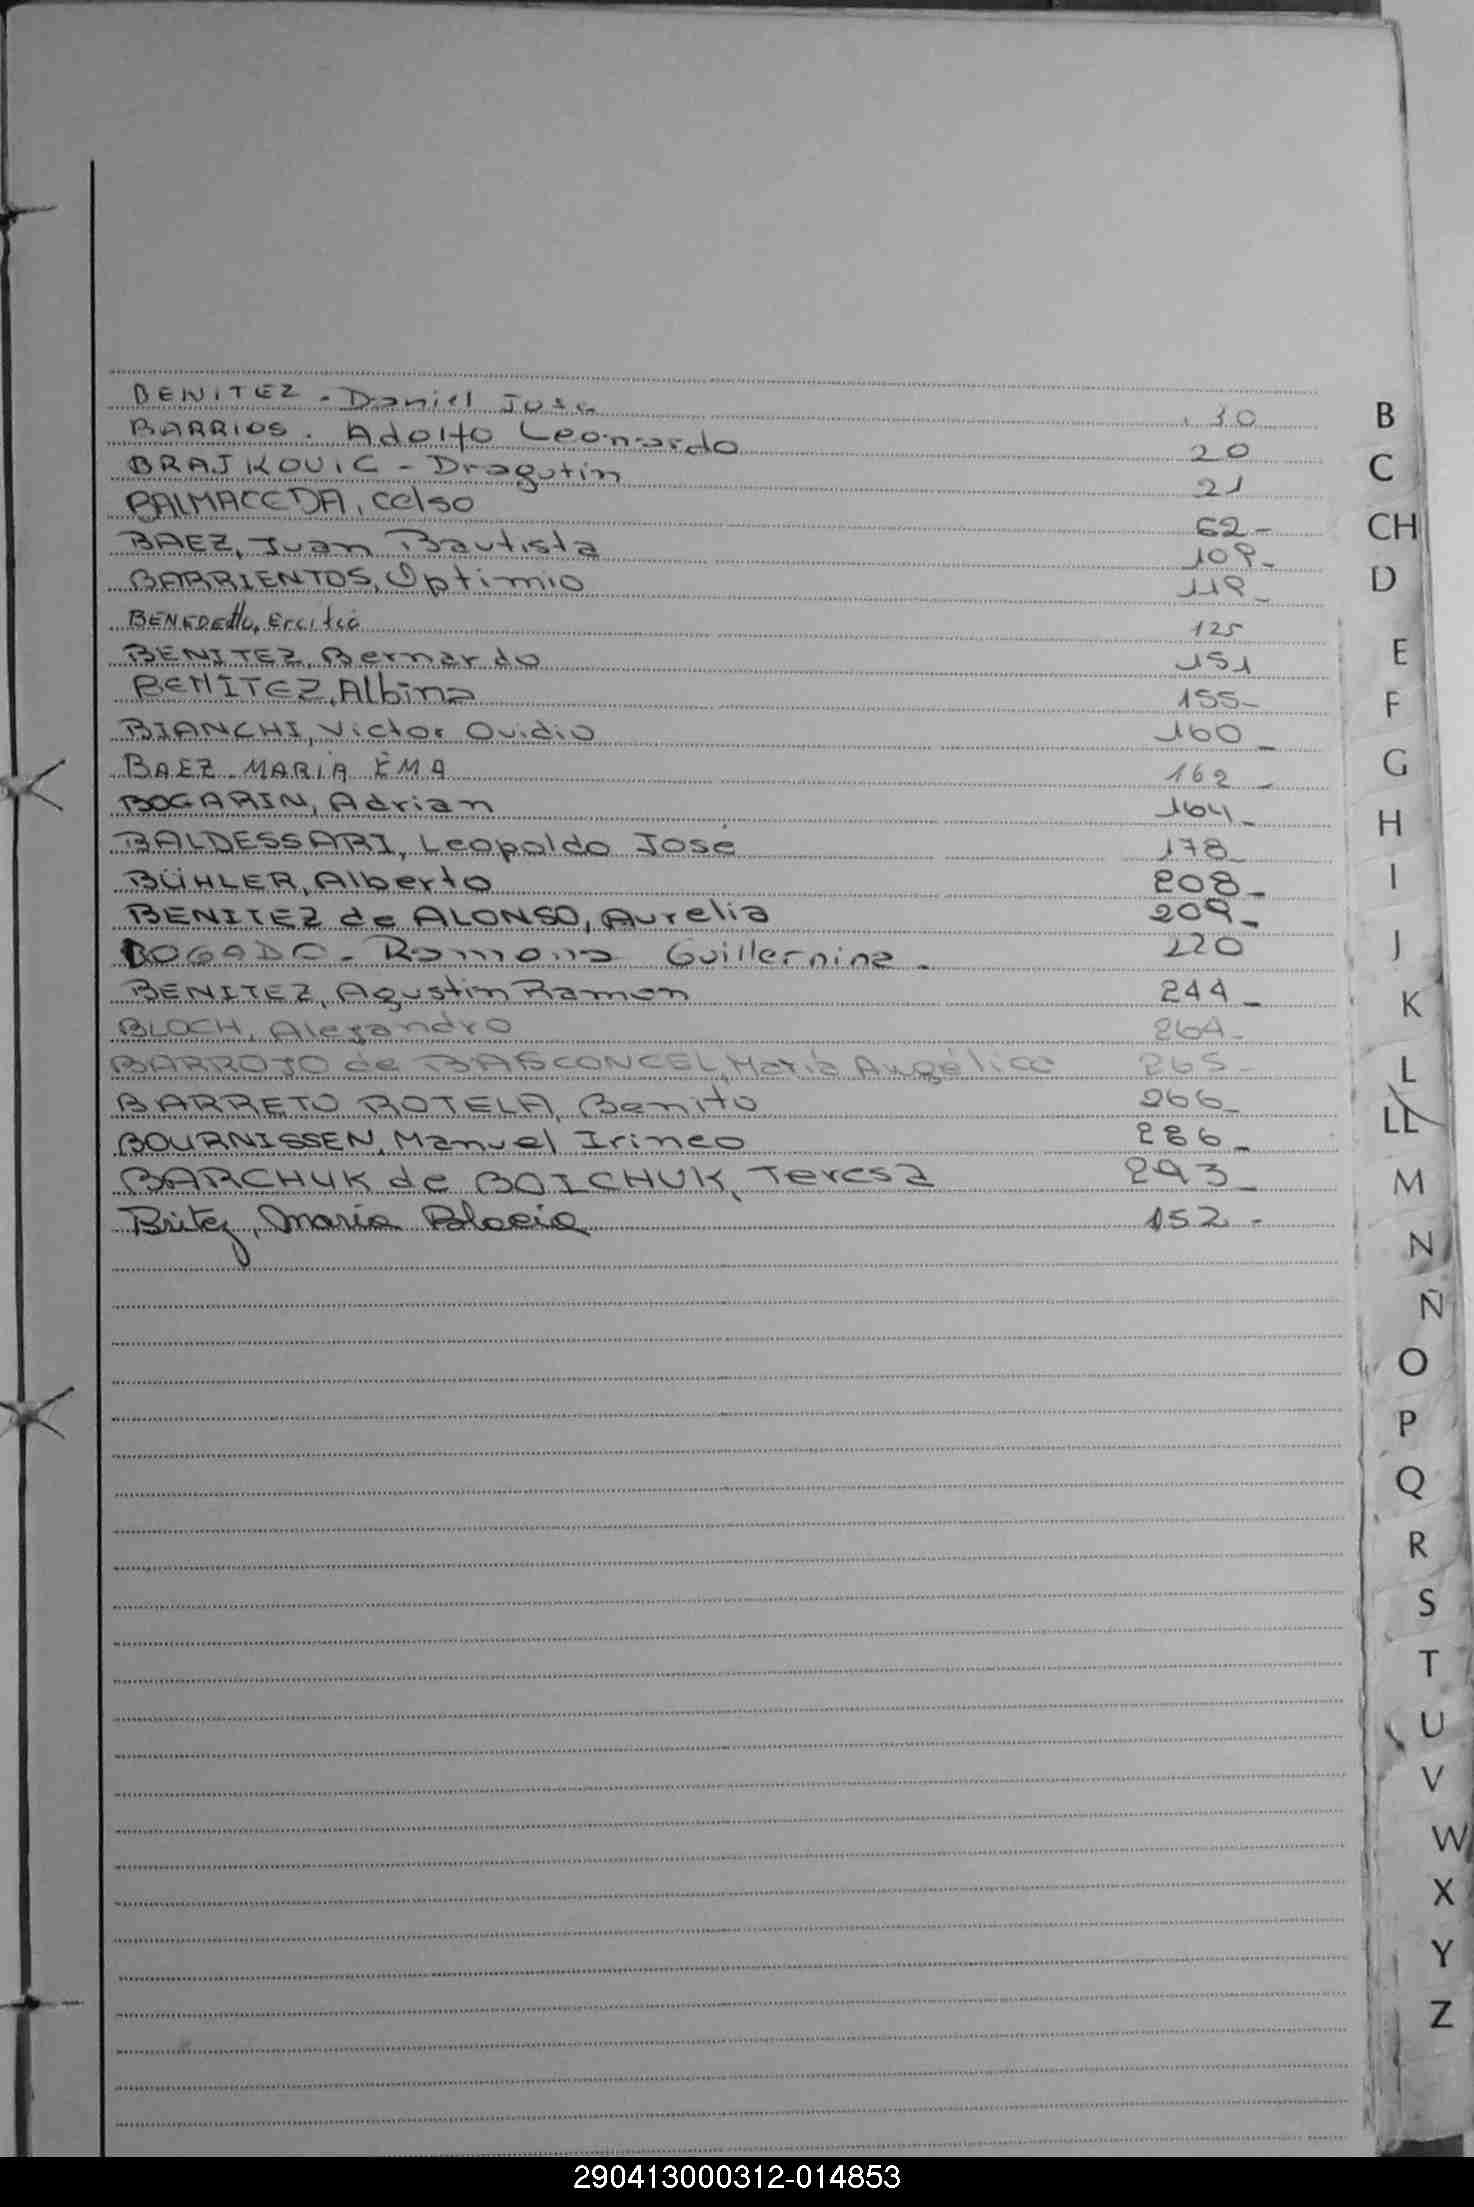 BENITEZ - Daniel Jose 10
BARRIOS. Adolfo Leonardo 20
BRAJKOVIC - Dragutin 21
BALMACEDA, Celso 62-
BAEZ, Juan Bautista 109-
BARRIENTOS, Optimio 119-
BENEDETTO, 125
BENITEZ, Bernardo 151
BENITEZ, Albina 155-
BIANCHI, Victor Ovidio 160-
BAEZ - MARIA EMA 162-
BOGARIN, Adrian 164-
BALDESSARI, Leopoldo José 178-
BÜHLER, Alberto 208-
BENITEZ de ALONSO, Aurelia 209-
BOGADO - Ramona Guillernina - 220
BENITEZ, Agustin Ramon 244-
BLOCH, Alejandro 264-
BARROJO de BASCONCEL, Maria Angélica 265-
BARRETO ROTELA, Benito 266-
BOURNISSEN, Manuel Irineo 286-
BARCHUK de BOICHUK, Teresa 293-
Britez, Maria 152-
B
C
CH
D
E
F
G
H
I
J
K
L
LL
M
N
Ñ
O
P
Q
R
S
T
U
V
W
X
Y
Z
290413000312-014853